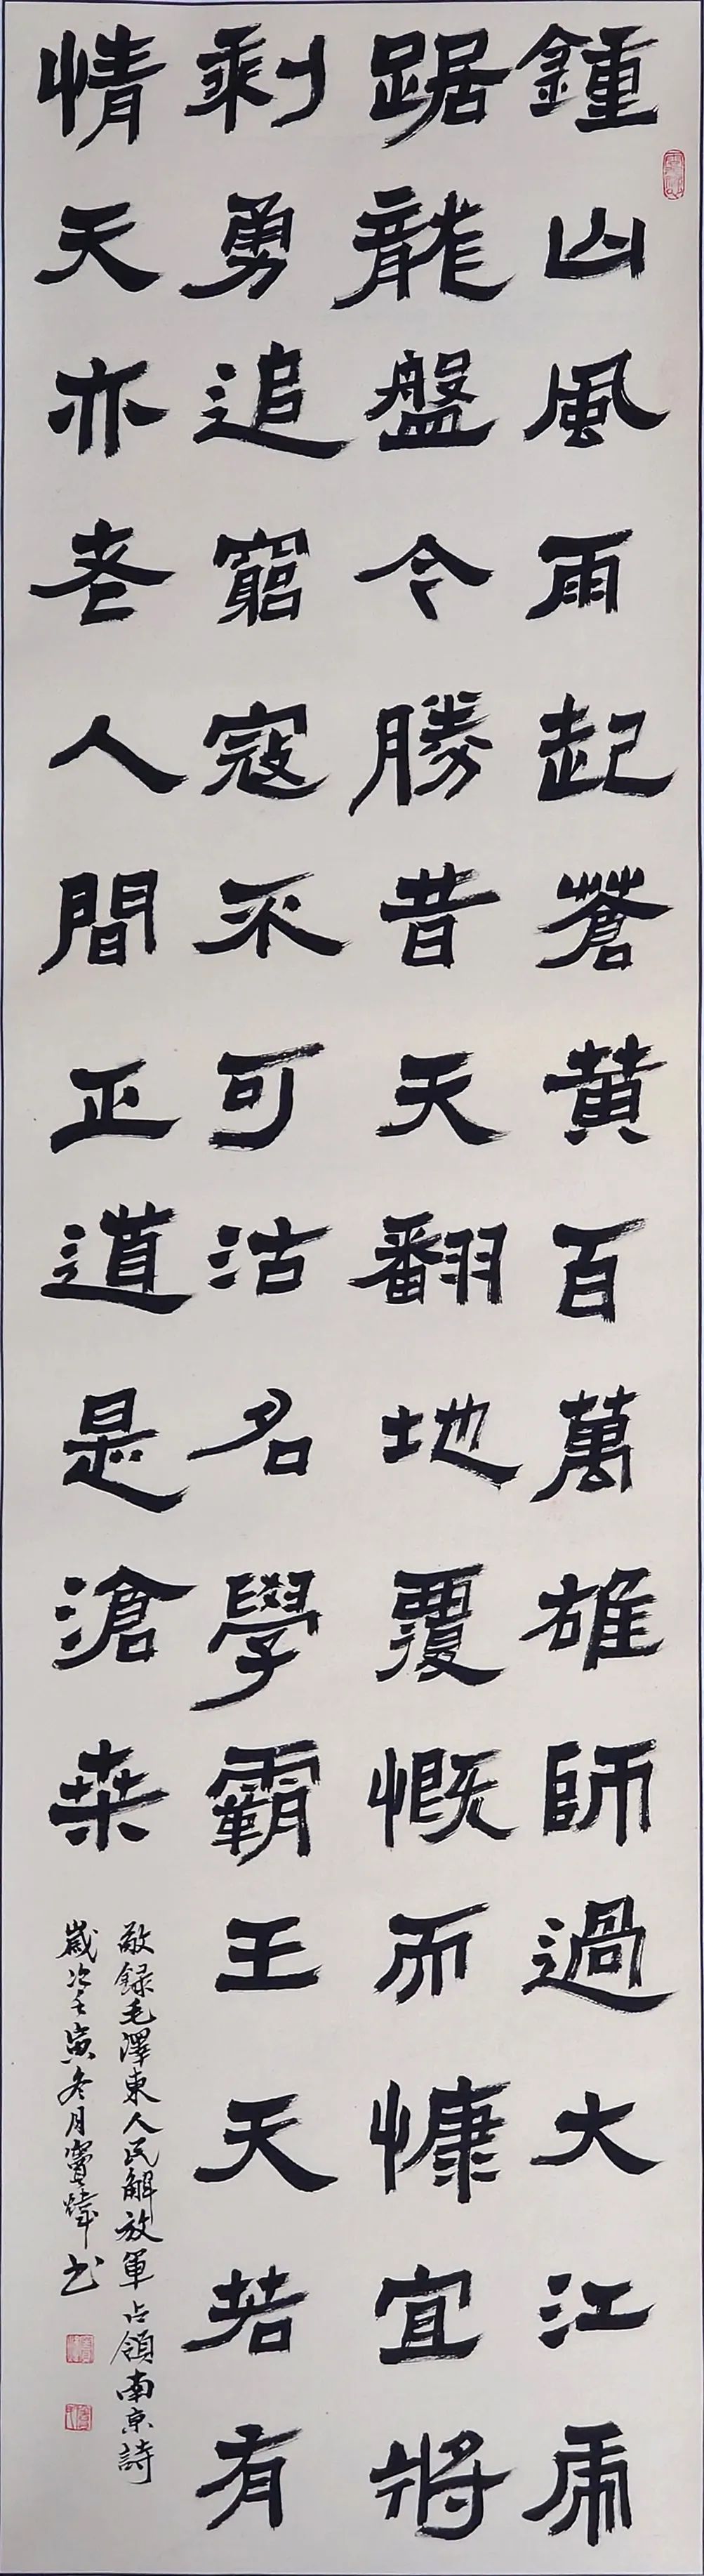 鍾山風雨起蒼黃百萬雄師過大江虎
踞龍盤今勝昔天翻地覆慨而慷宜將
剩勇追窮寇不可沽名學霸王天若有
情天亦老人間正道是滄桑
敬録毛澤東人民解放軍占領南京詩
歲次壬寅冬月寶煒书